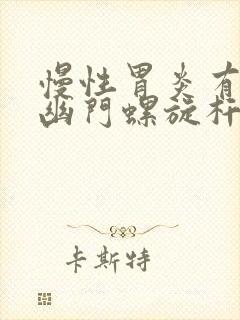 慢性胃炎有
幽门螺旋杆
卡斯特